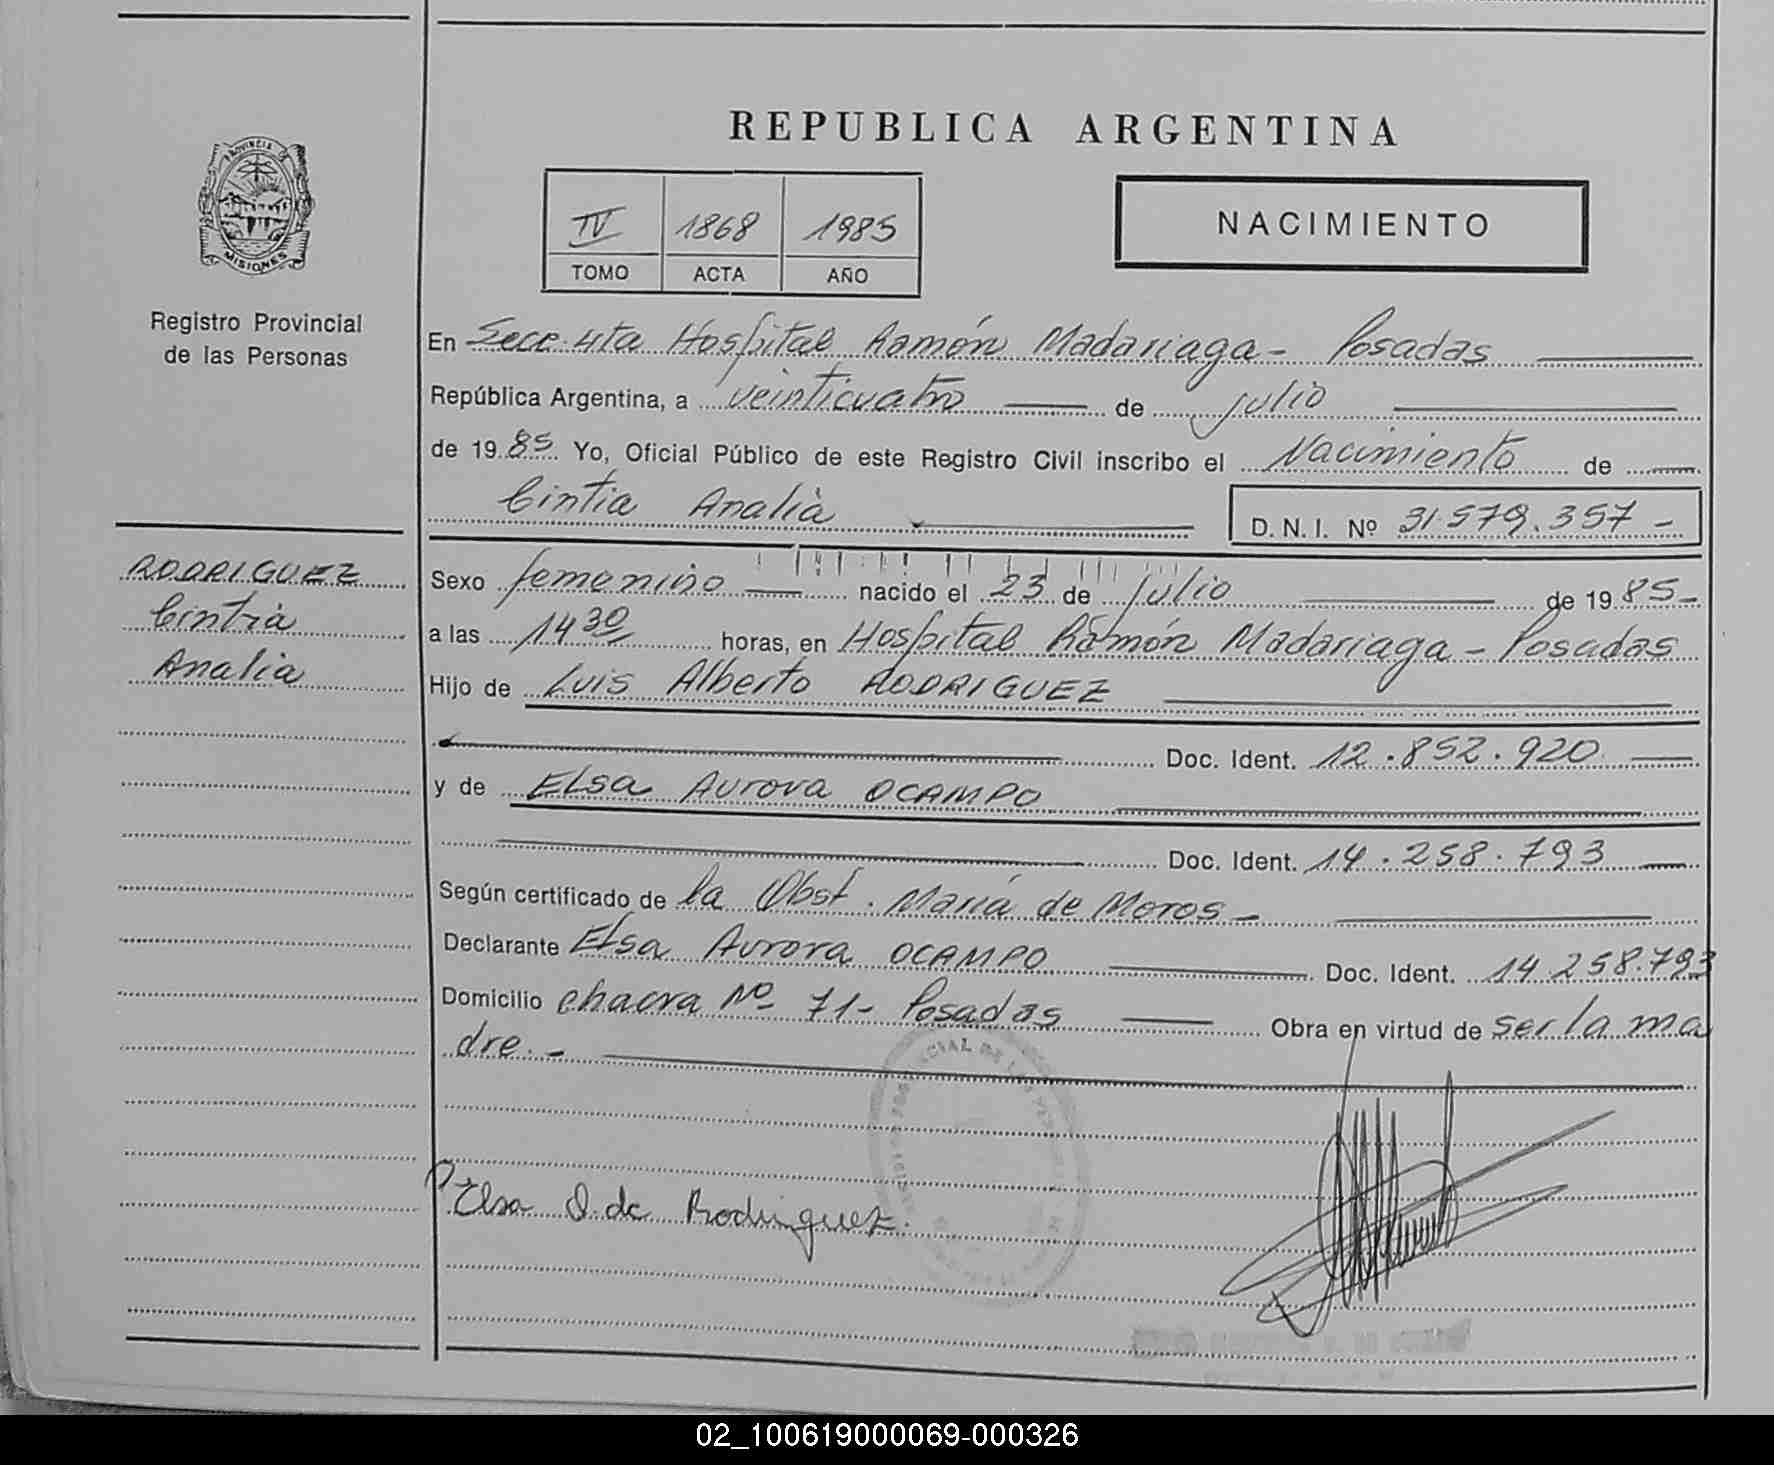 REPUBLICA ARGENTINA
PROVINCIA DE
MISIONES
Registro Provincial
de las Personas
IV 1868 1985
TOMO ACTA AÑO
NACIMIENTO
En Secc. 4ta Hospital Ramón Madariaga - Posadas
República Argentina, a veinticuatro de julio
de 1985 Yo, Oficial Público de este Registro Civil inscribo el Nacimiento de
Cintia Analia D. N. I. Nº 31.579.357 -
RODRIGUEZ
Cintia
Analia
Sexo femenino nacido el 23 de julio de 1985-
a las 14 30 horas, en Hospital Ramón Madariaga - Posadas
Hijo de Luis Alberto RODRIGUEZ
Doc. Ident. 12.852.920
y de ELsa Aurora OCAMPO
Doc. Ident. 14.258.793
Según certificado de la Obst. María de Moros -
Declarante ELsa Aurora OCAMPO Doc. Ident. 14.258.793
Domicilio chacra Nº 71 - Posadas Obra en virtud de ser la ma
dre. -
Elsa O. de Rodriguez.
02_100619000069-000326